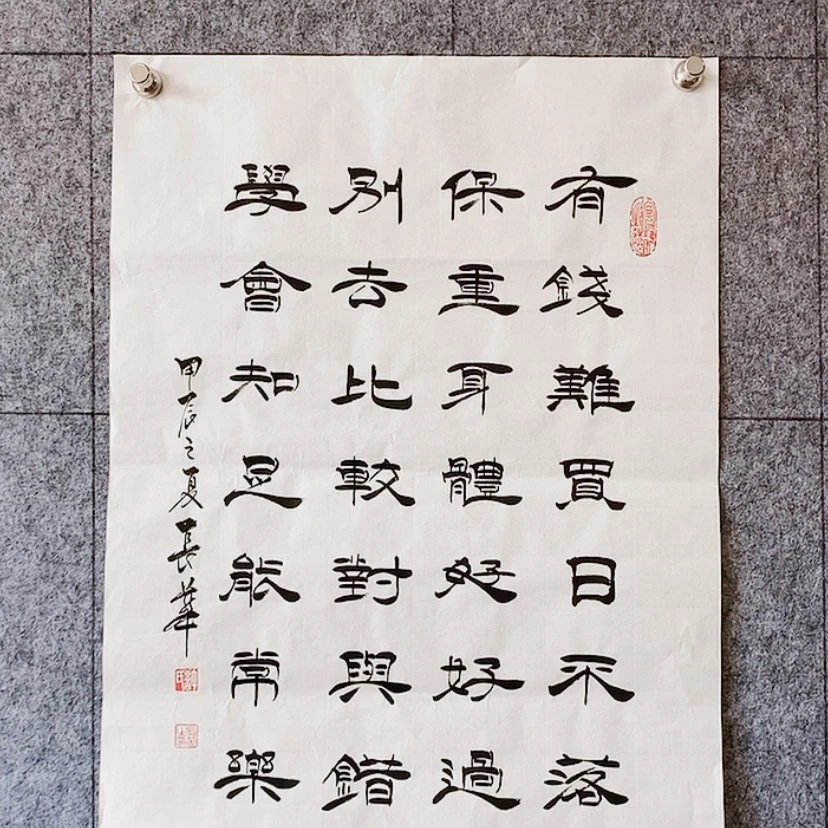 有錢難買日不落
保重身體好好過
別去比較對與錯
學會知足能常樂
甲辰之夏長華